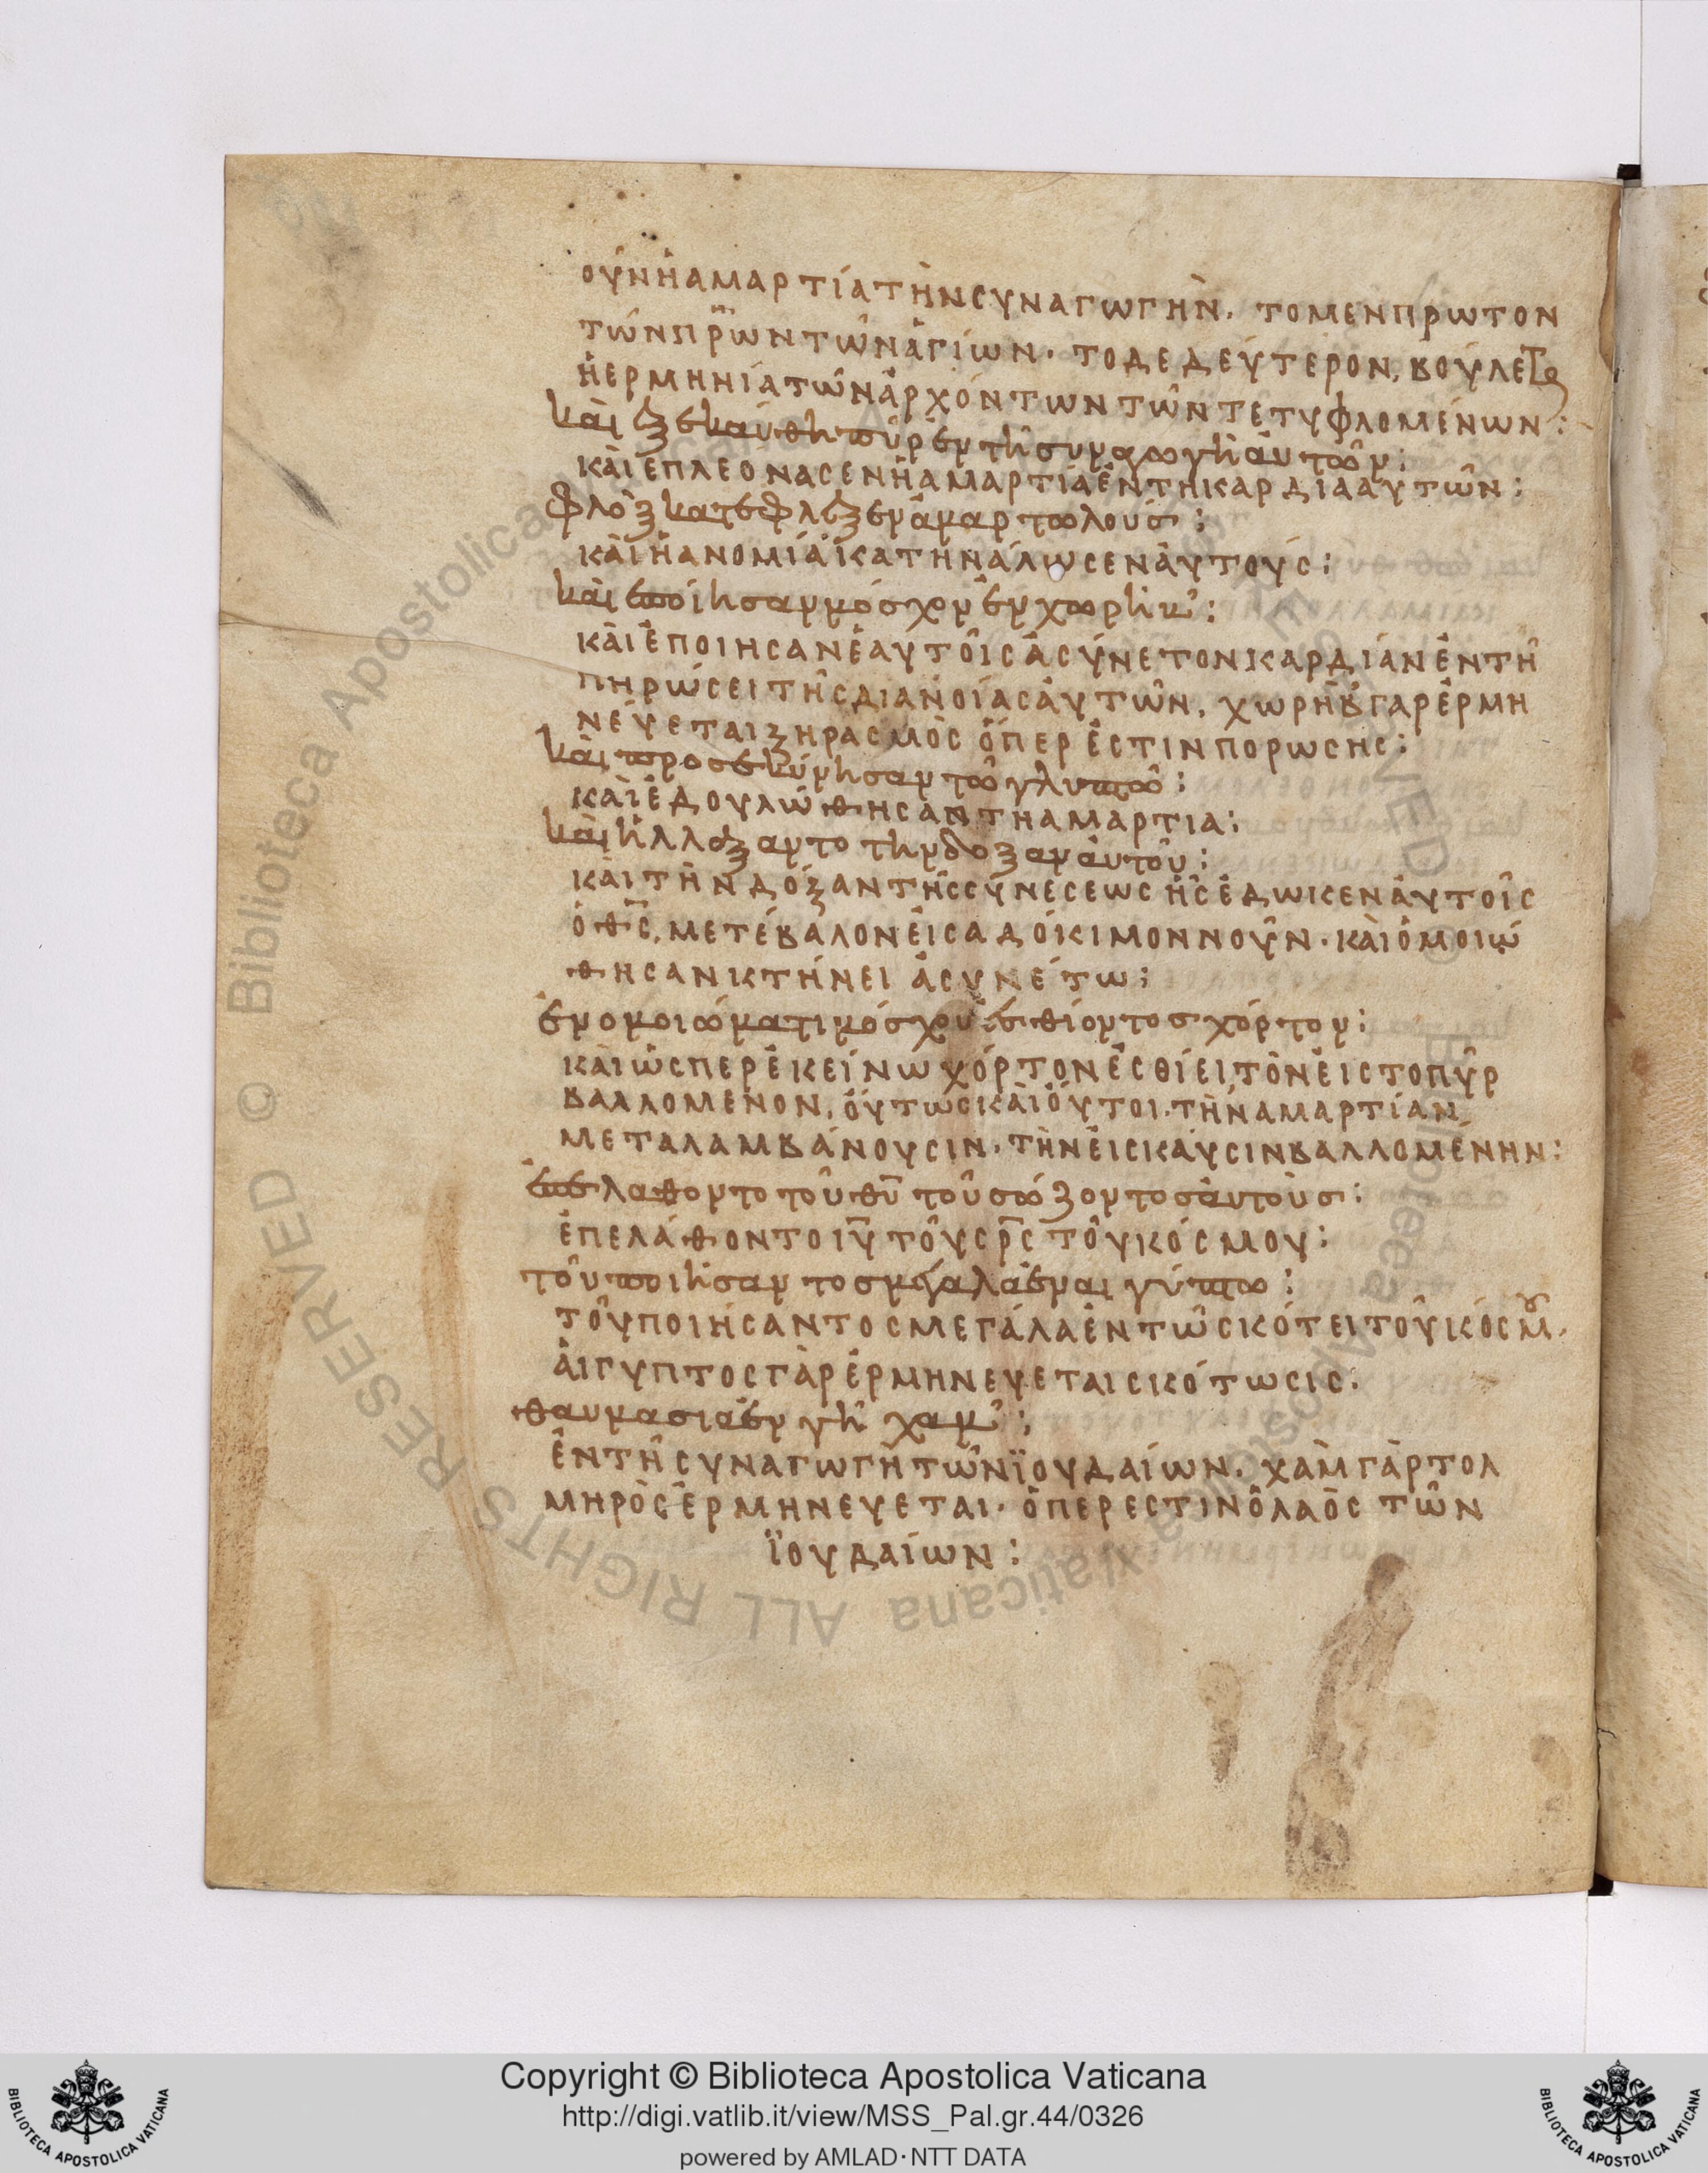 οὖν ἡ ἁμαρτία τὴν συναγωγὴν· το μεν πρωτον
τῶν πρ̅ων τῶν ἁγίων· το δε δεύτερον, βούλεται
ἡ ερμηνία τῶν ἀρχόντων τῶν τετυφλομένων:
καὶ ἐξεκαύθη πῦρ ἐν τῆ συναγωγὴ ἀυτῶν:
καὶ ἐπλεόνασεν ἡ ἁμαρτία ἐν τη καρδία ἀυτῶν:
φλὸξ κατέφλεξεν ἁμαρτωλούς:
καὶ ἡ ανομία ἱκατηνάλωσεν ἀυτούς:
καὶ ἐποίησαν μόσχον ἐν χωρὴβ:
καὶ ἐποιησαν ἑαυτοῖς ἀσύνετον καρδίαν ἐν τῆ
πηρώσει τῆς διανοίας ἀυτῶν, χωρὴβ γαρ ἑρμη
νέυεται ξηρασμὸς ὅπερ ἐστιν πορωσης:
καὶ προσεκύνησαν τῶ γλυπτῶ:
καὶ ἐδουλώθησαν τη αμαρτια:
καὶ ἠλλάξαντο την δόξαν ἀυτοῦ:
και τὴν δόξαν τῆς συνέσεως ἧς ἔδωκεν ἀυτοῖς
ὁ θ̅ς, μετέβαλον ἐις αδόκιμον νοῦν· καὶ ὁμοιώ
θησαν κτήνει ἀσυνέτω:
ἐν ομοιώματι μόσχου ἐσθίοντος χόρτον:
καὶ ὥσπερ ἐκείνω χόρτον ἐσθίει τὸν ἐις το πῦρ
βαλλομενον, οὕτως καὶ οὗτοι τὴν αμαρτίαν
μεταλαμβάνουσιν· τὴν ἐις καύσιν βαλλομένην:
ἐπελαθοντο τοῦ θ̅υ τοῦ σώζοντος ἀυτοὺς:
ἐπελάθοντο ι̅υ τοῦ σρ̅ς τοῦ κόσμου:
τοῦ ποιήσαντος μεγάλα ἐν αιγύπτω:
τοῦ ποιήσαντος μεγάλα ἐν τῶ σκότει τοῦ κόσμου,
ἀιγυπτος γὰρ ἑρμηνευεται σκότωσις:
θαυμασια ἐν γῆ χαμ:
ἐν τῆ συναγωγὴ τῶν ϊουδαίων· χὰμ γὰρ τολ
μηρὸς ἑρμηνευεται· ὅπερ εστιν ὁ λαὸς τῶν
ϊουδαίων:
Biblioteca Apostolica Vaticana ALL RIGHTS RESERVED ©
Copyright © Biblioteca Apostolica Vaticana
http://digi.vatlib.it/view/MSS_Pal.gr.44/0326
powered by AMLAD·NTT DATA
BIBLIOTECA APOSTOLICA VATICANA
BIBLIOTECA APOSTOLICA VATICANA